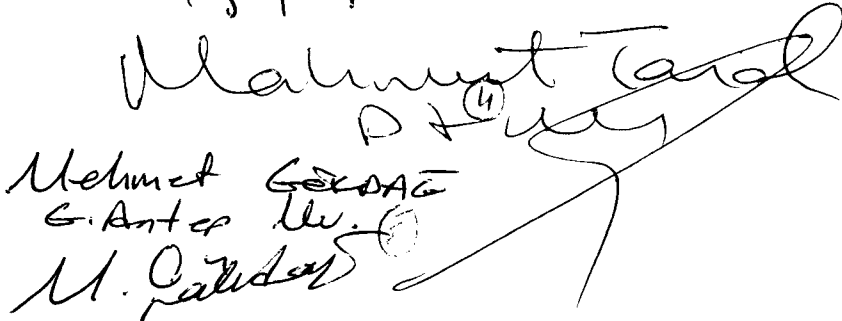 Mahmut Tanal
(4)
Mehmet GÖKDAĞ
G.Antep Mv.
M. Gökdağ